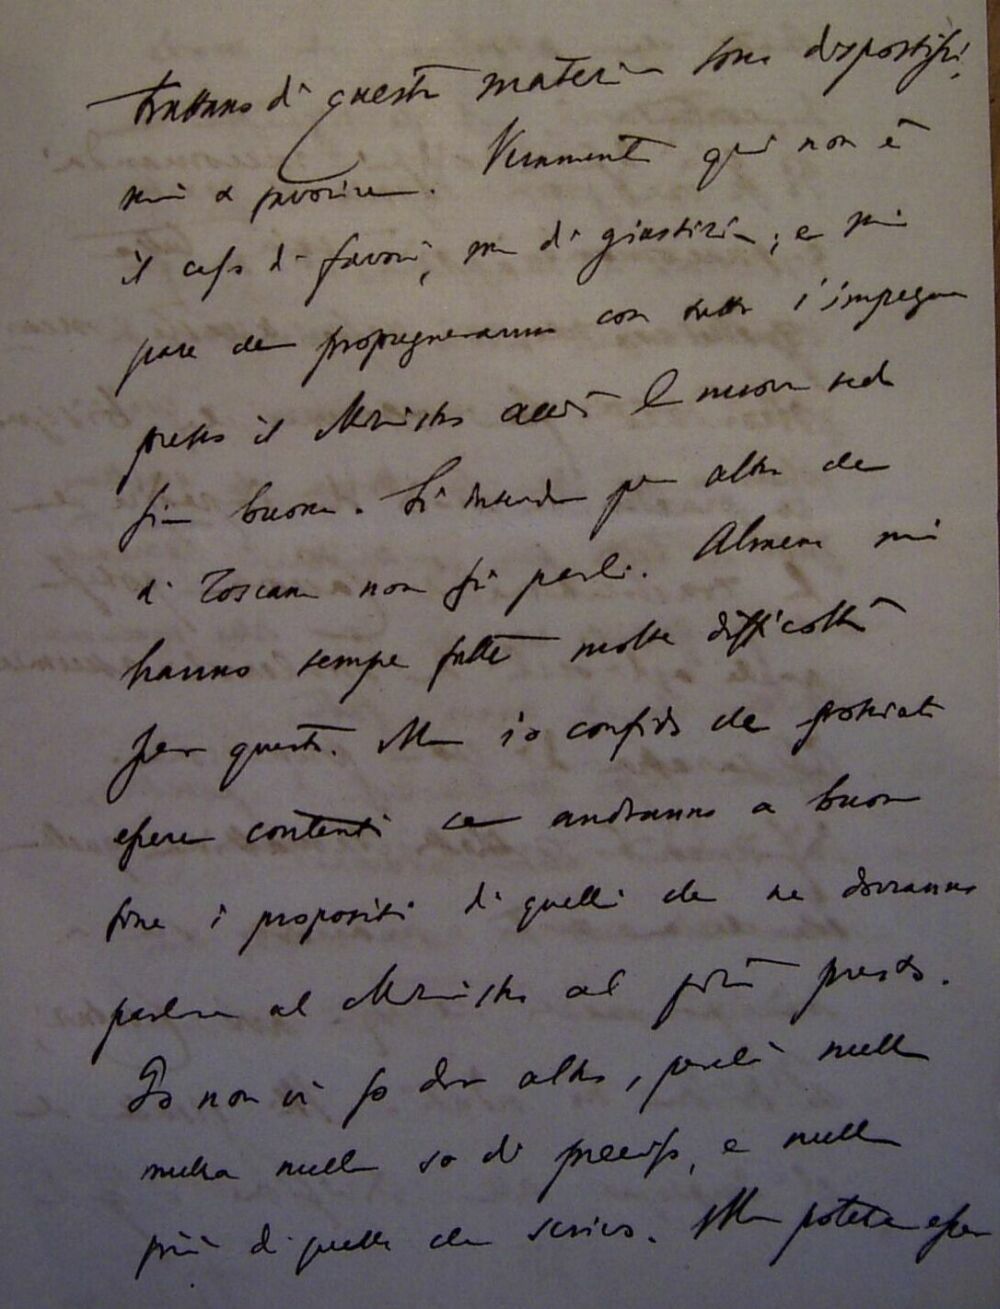 trattano di questa materia sono dispostissi,
mi a favorire. Veramente qui non è
il caso di favori, ma di giustizia; e mi
pare che propugneranno con tutto l'impegno
presso il Ministro acciò la nuova sede
sia buona. S'intende per altro che
di Toscana non si parli. Almeno mi
hanno sempre fatte molte difficoltà
per questo. Ma io confido che potrete
essere contenti e che andranno a buon
fine i propositi di quelli che ne dovranno
parlare al Ministro al più presto.
Io non vi so dir altro, perché nulla
nulla nulla so di preciso, e nulla
più di quello che scrivo. Ma potete esser